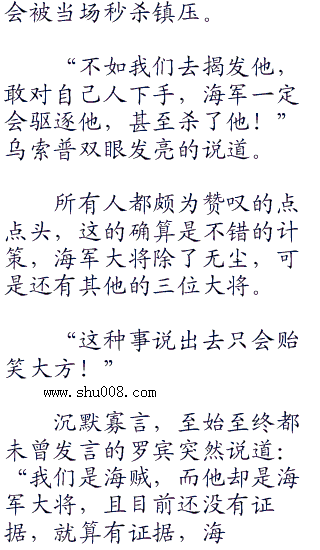 会被当场秒杀镇压。
“不如我们去揭发他，
敢对自己人下手，海军一定
会驱逐他，甚至杀了他！”
乌索普双眼发亮的说道。
所有人都颇为赞叹的点
点头，这的确算是不错的计
策，海军大将除了无尘，可
是还有其他的三位大将。
“这种事说出去只会贻
笑大方！”
www.shu008.com
沉默寡言，至始至终都
未曾发言的罗宾突然说道：
“我们是海贼，而他却是海
军大将，且目前还没有证
据，就算有证据，海